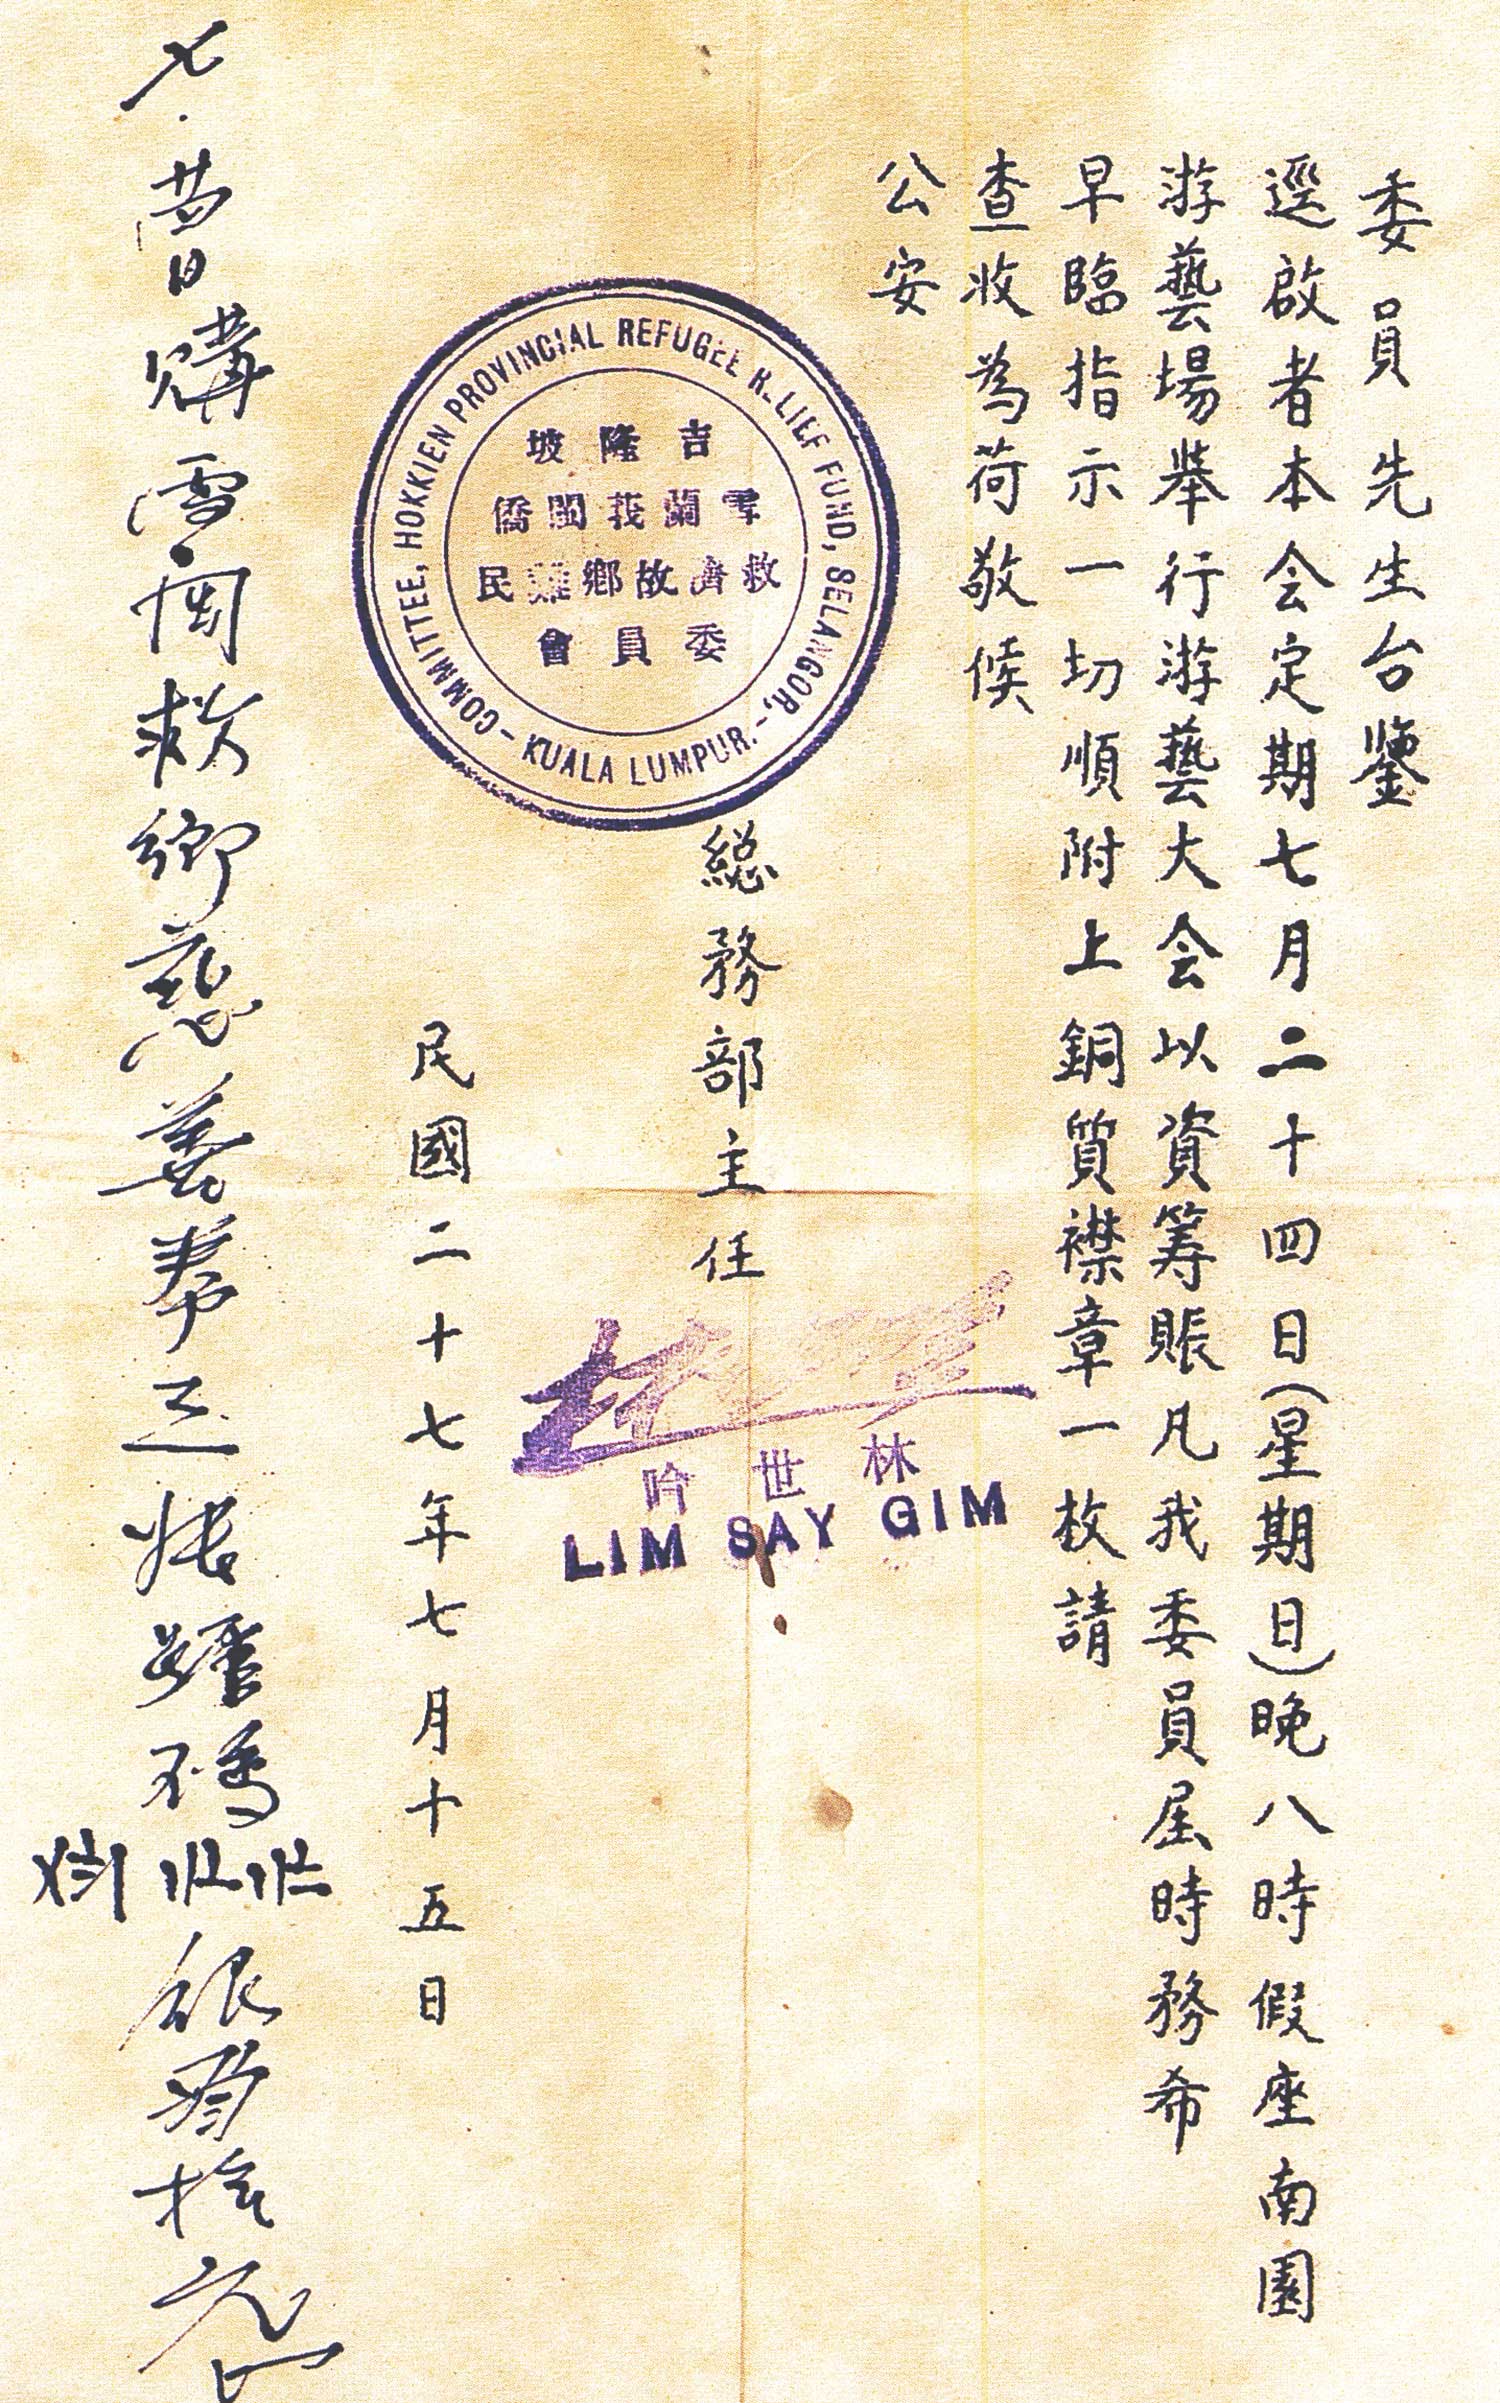 委員先生台鑒
逕啟者本会定期七月二十四日(星期日)晚八時假座南園
游藝場舉行游藝大会以資筹賬凡我委員届時務希
早臨指示一切順附上銅質襟章一枚請
查收為荷敬候
公安
總務部主任
林世吟
LIM SAY GIM
COMMITTEE, HOKKIEN PROVINCIAL REFUGEE RELIEF FUND, SELANGOR,-
- KUALA LUMPUR.-
吉隆坡
雪蘭莪閩僑
救濟故鄉難民
委員會
民國二十七年七月十五日
昔日購雪閩救鄉慈善券三張